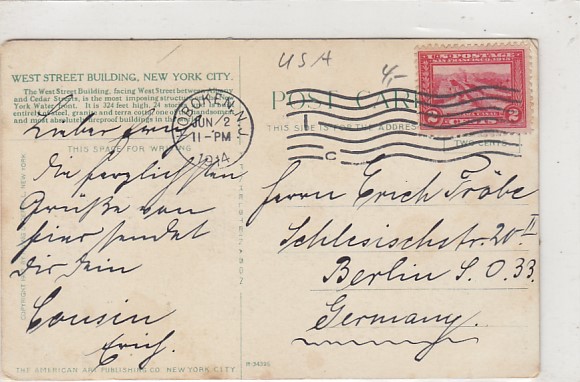 USA
4,-
WEST STREET BUILDING, NEW YORK CITY.
The West Street Building, facing West Street between Albany
and Cedar Streets, is the most imposing structure on
York Water front. It is 324 feet high, 24 stories
entirely steel, granite and terra cotta, one of the handsomest
and most absolutely fireproof buildings in the
POST CARD
THIS SPACE FOR WRITING
THIS SIDE IS FOR THE ADDRESS
HOBOKEN, N.J.
JUN 2
11-PM
1914
1
C
U.S. POSTAGE
SAN FRANCISCO, 1915
2 CENTS 2
TWO CENTS
Lieber Erich
Die herzlichsten
Grüße von
hier sendet
Dir Dein
Cousin
Erich.
Herrn Erich Tröbe
Schlesischstr. 20 II
Berlin S. O. 33.
Germany.
THE AMERICAN ART PUBLISHING CO. NEW YORK CITY